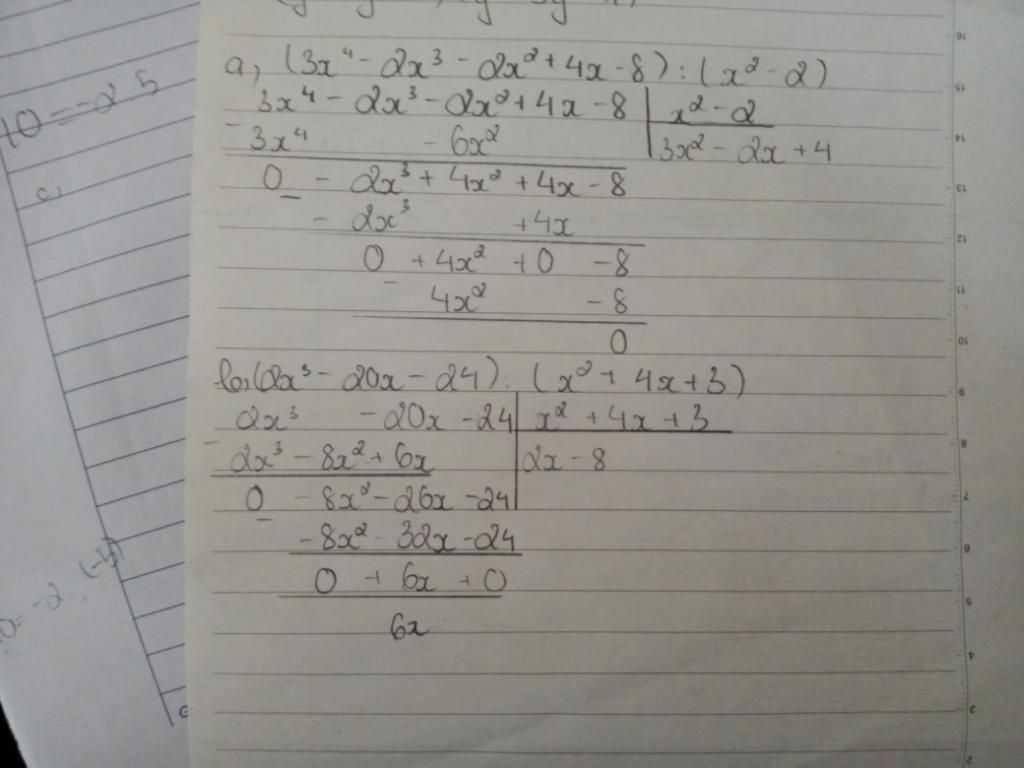 a, (3x⁴ - 2x³ - 2x² + 4x - 8) : (x² - 2)
3x⁴ - 2x³ - 2x² + 4x - 8 | x² - 2
- 3x⁴ - 6x² | 3x² - 2x + 4
0 - 2x³ + 4x² + 4x - 8
- - 2x³ + 4x
0 + 4x² + 0 - 8
- 4x² - 8
0
b, (2x³ - 20x - 24) : (x² + 4x + 3)
2x³ - 20x - 24 | x² + 4x + 3
- 2x³ - 8x² + 6x | 2x - 8
0 - 8x² - 26x - 24
- - 8x² - 32x - 24
0 + 6x + 0
6x
10 = -2 5
c,
0 = -2 . (-5)
16
15
14
13
12
11
10
9
8
7
6
5
4
3
2